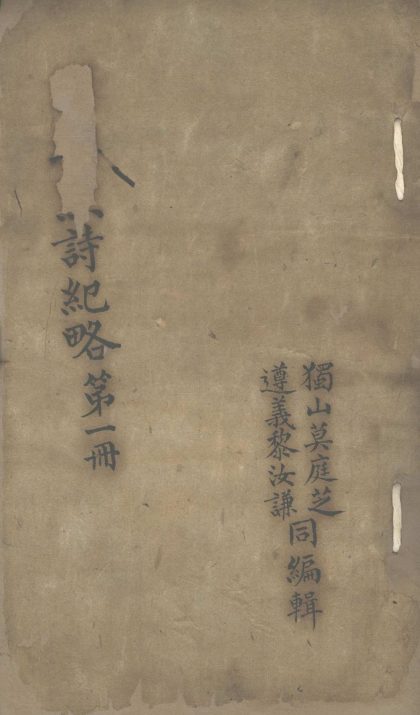 獨山莫庭芝
遵義黎汝謙
同編輯
詩紀略第一冊